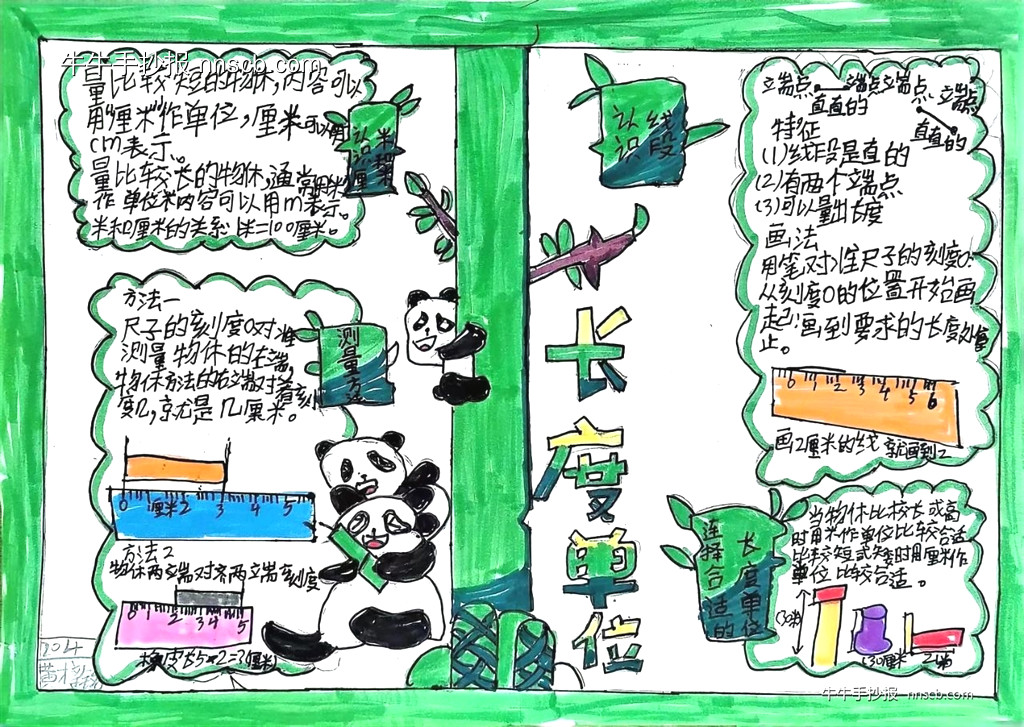 牛牛手抄报 nnscb.com
量比较短的物体,内容可以
用厘米作单位,厘米可以用
cm表示。
量比较长的物体,通常用米
作单位米内容可以用m表示。
米和厘米的关系1米=100厘米。
认识厘米和米
方法一
尺子的刻度0对准
测量物体的左端,
物体方法的右端对着刻
度几,就是几厘米。
测量方法
0 1厘米2 3 4 5
方法2
物体两端对齐两端刻度
0 1 2 3 4 5
橡皮长5-2=3(厘米)
长度单位
认识线段
端点 端点 端点 端点
直直的
直直的
特征
(1)线段是直的
(2)有两个端点
(3)可以量出长度
画法
用笔对准尺子的刻度0
从刻度0的位置开始画
起,画到要求的长度为
止。
0 1 2 3 4 5 6
画2厘米的线 就画到2
选择合适的长度单位
当物体比较长或高
时用米作单位比较合适
比较短或矮时用厘米作
单位比较合适。
牛牛手抄报 nnscb.com